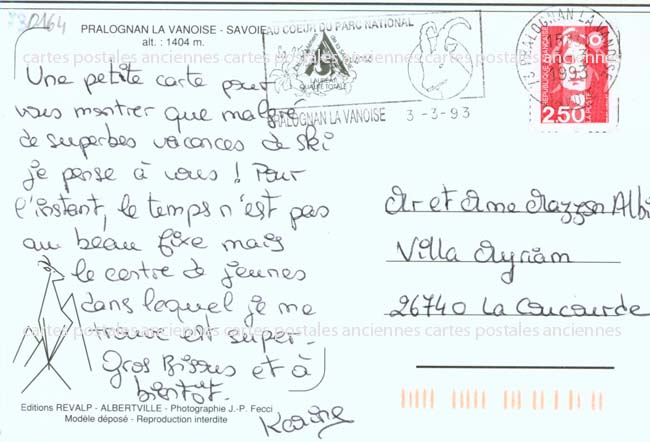 02164
PRALOGNAN LA VANOISE - SAVOIE
alt. : 1404 m.
AU COEUR DU PARC NATIONAL
LAUREAT
QUALITE TOTALE
PRALOGNAN LA VANOISE 3-3-93
73 PRALOGNAN LA VANOISE
1993
2,50
Une petite carte pour
vous montrer que malgré
de superbes vacances de ski
je pense à vous ! Pour
l'instant, le temps n'est pas
au beau fixe mais
le centre de jeunes
dans lequel je me
trouve est super.
Gros Bisous et à
bientôt.
Karine
Mr et Mme Mazzon Albi
Villa Myriam
26740 La Coucourde
cartes postales anciennes cartes postales anciennes cartes postales anciennes
cartes postales anciennes cartes postales anciennes cartes postales anciennes
Editions REVALP - ALBERTVILLE - Photographie J.-P. Fecci
Modèle déposé - Reproduction interdite